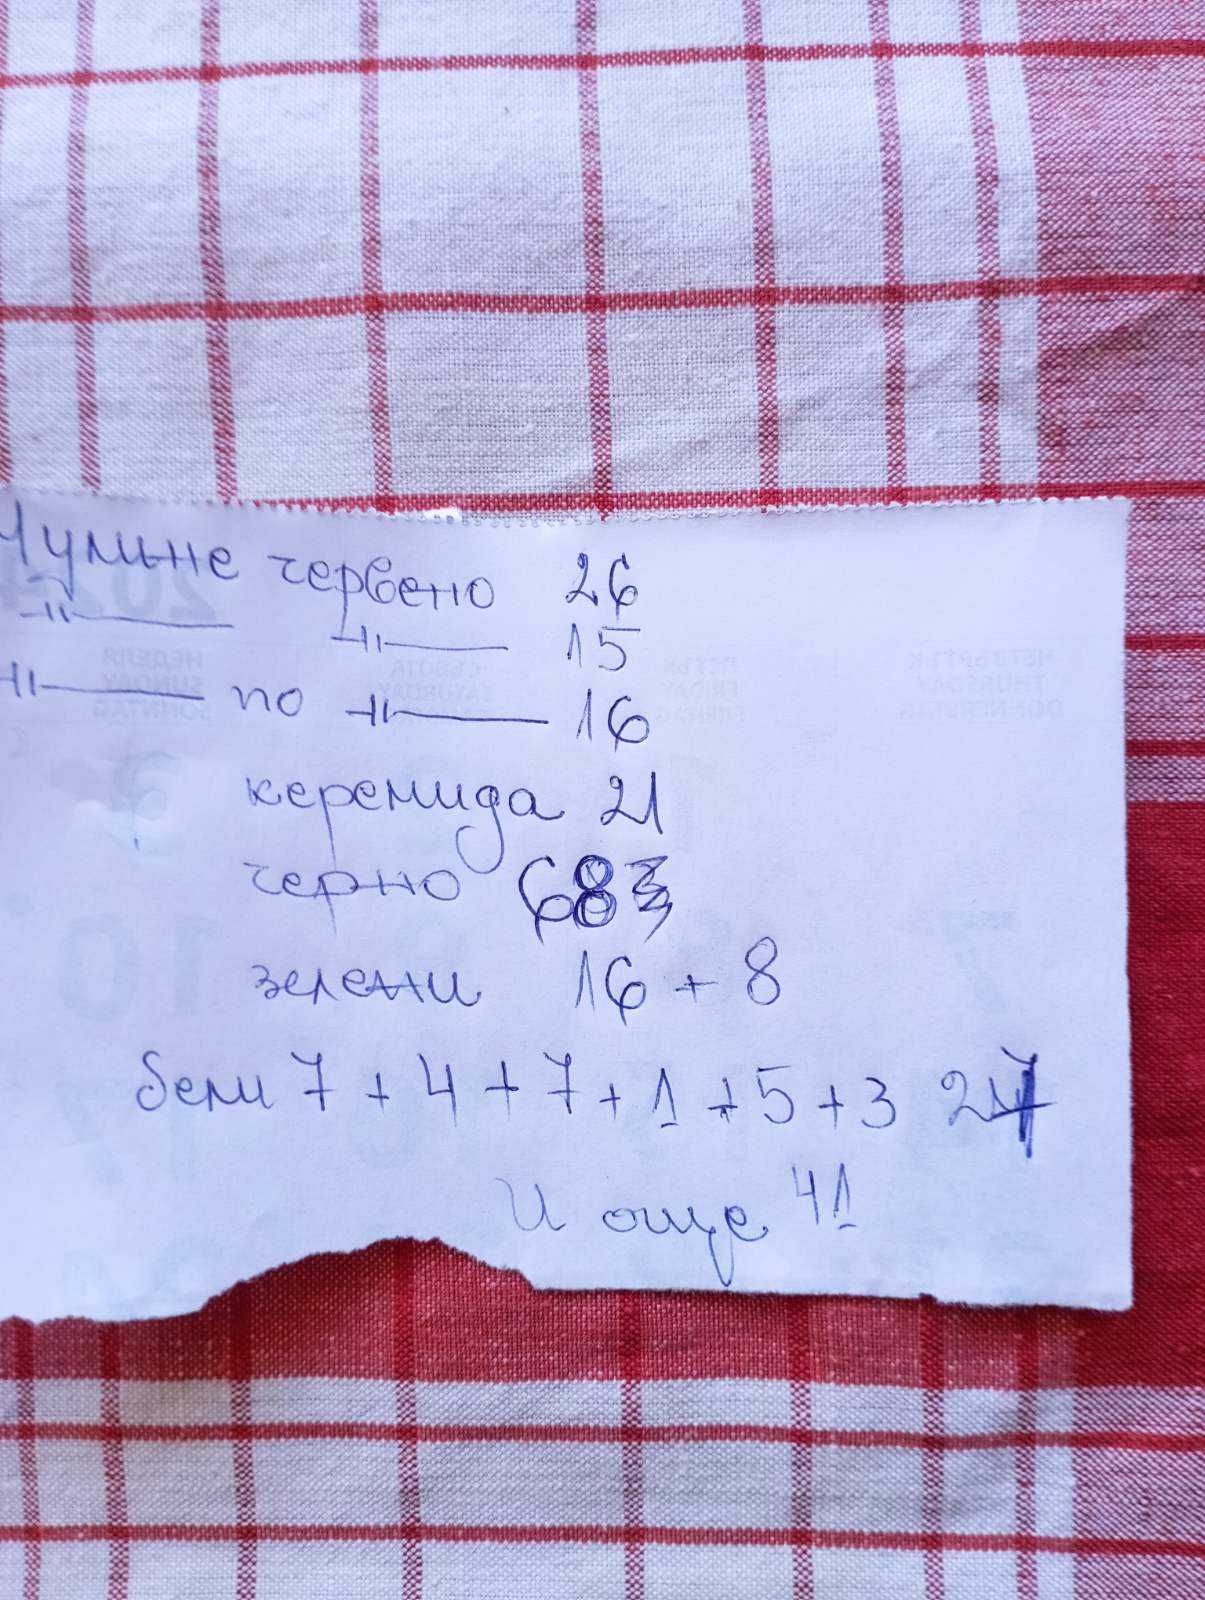 Чумьне червено 26
—〃— —〃— 15
—〃— по —〃— 16
керемида 21
черно 68
зелени 16 + 8
бели 7 + 4 + 7 + 1 + 5 + 3 27
И още 41